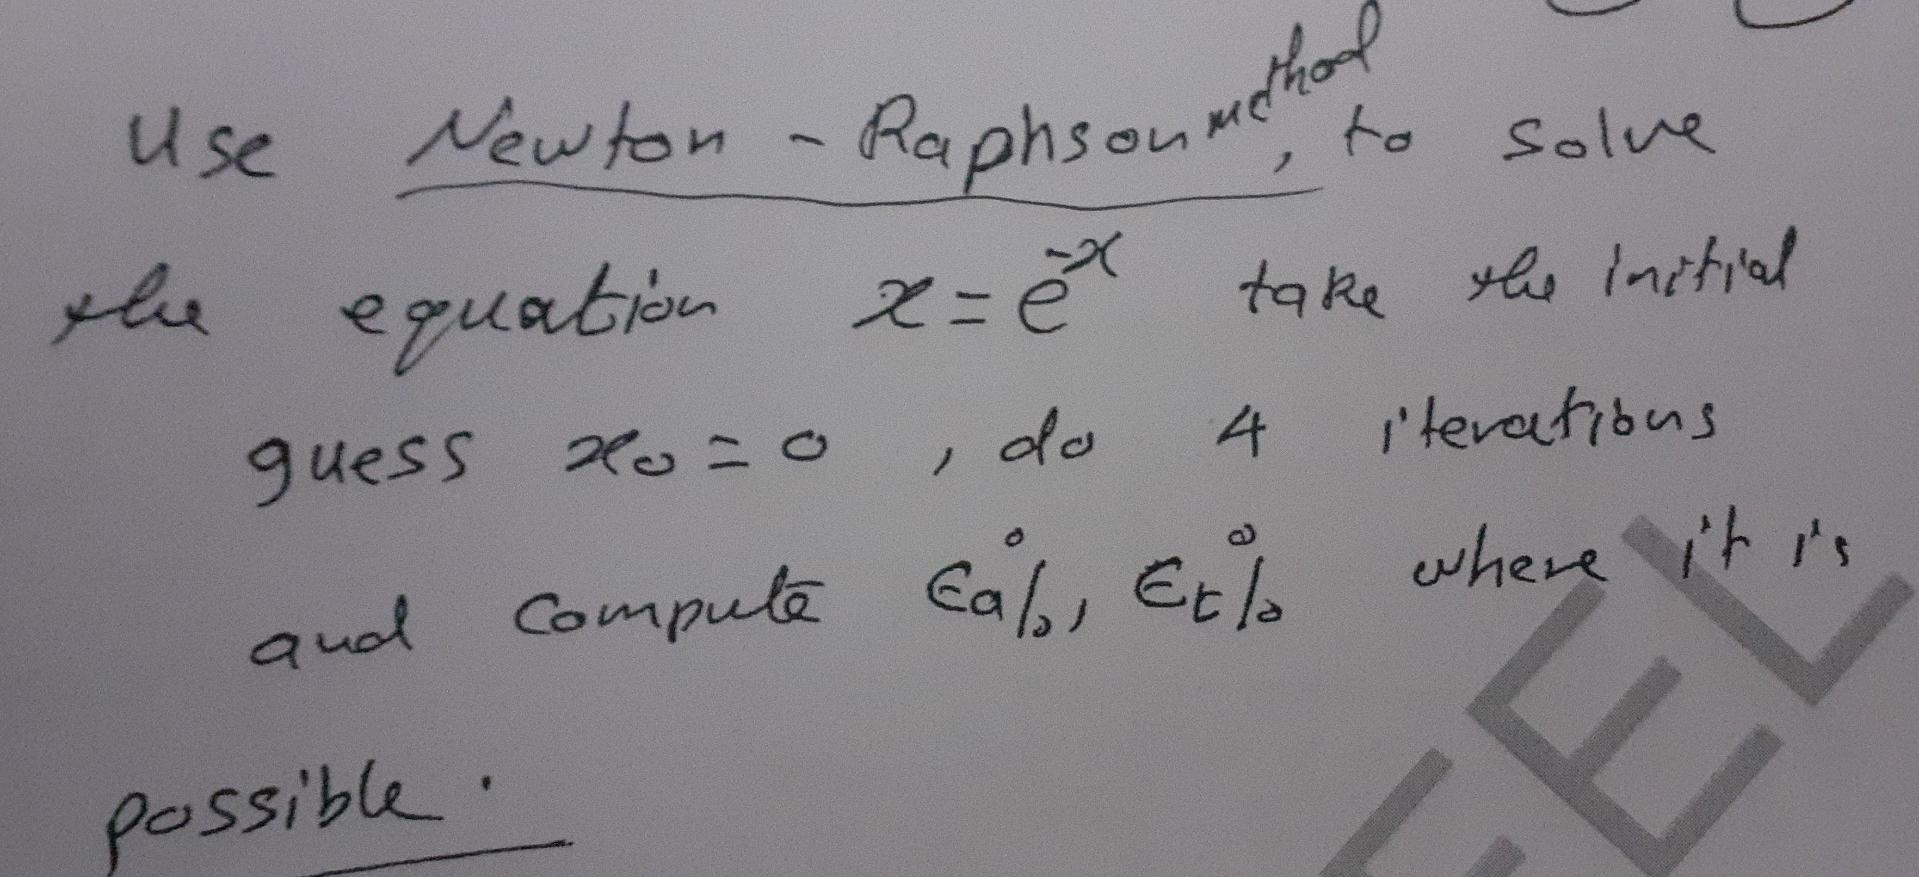 Use Newton - Raphson method, to solve
the equation x = e^-x take the initial
guess x₀ = 0 , do 4 iterations
and compute Ea%, Et% where it is
possible.